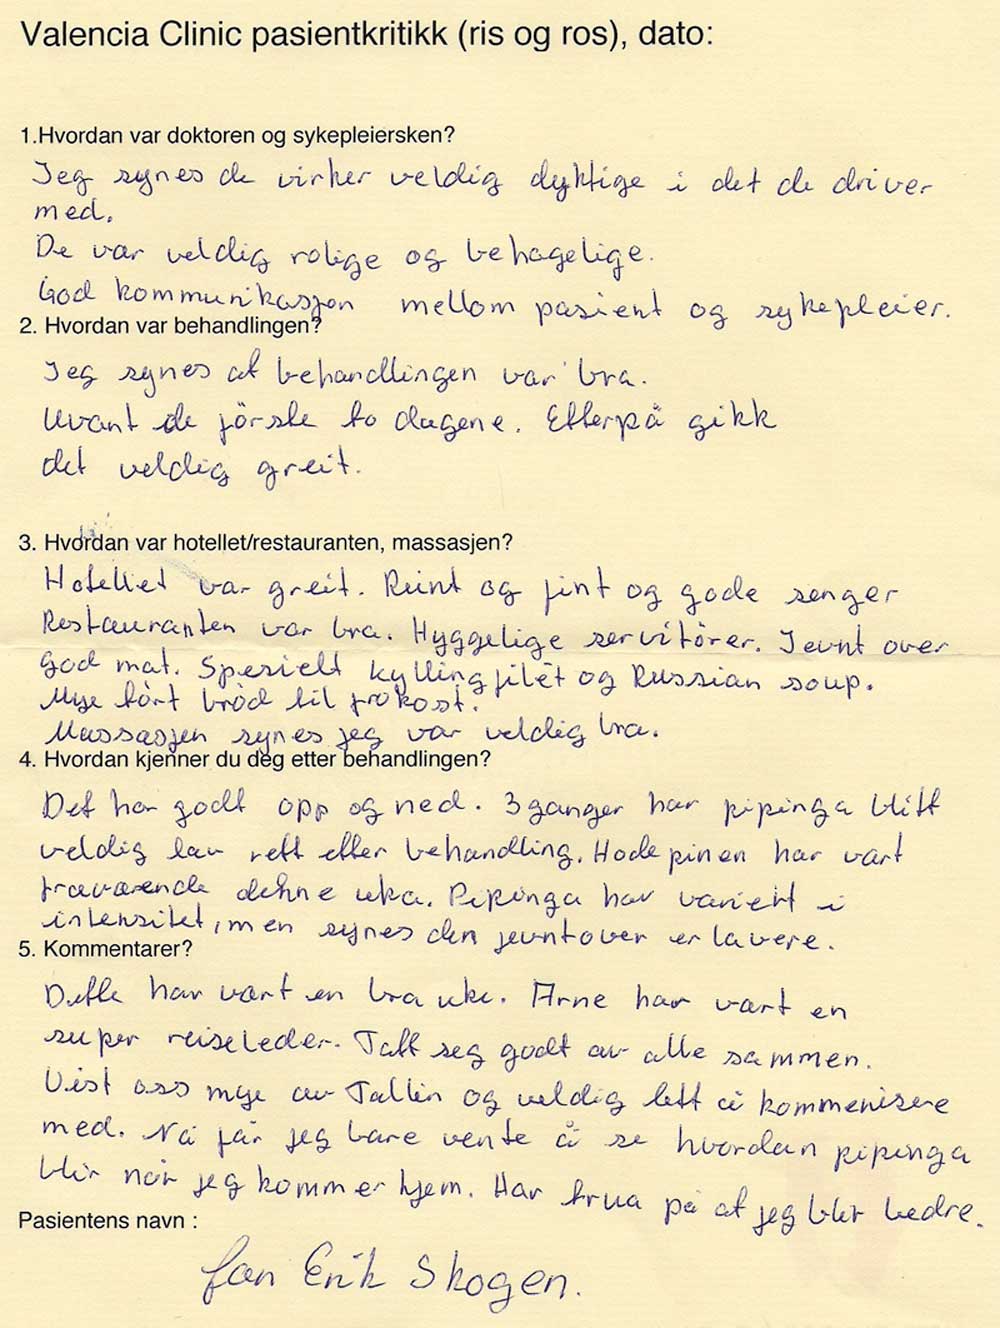 Valencia Clinic pasientkritikk (ris og ros), dato:
1.Hvordan var doktoren og sykepleiersken?
Jeg synes de virker veldig dyktige i det de driver
med.
De var veldig rolige og behagelige.
God kommunikasjon mellom pasient og sykepleier.
2. Hvordan var behandlingen?
Jeg synes at behandlingen var bra.
Uvant de første to dagene. Etterpå gikk
det veldig greit.
3. Hvordan var hotellet/restauranten, massasjen?
Hotellet var greit. Reint og fint og gode senger
Restauranten var bra. Hyggelige servitører. Jevnt over
god mat. Spesielt kyllingfilét og Russian soup.
Mye tørt brød til frokost.
Massasjen synes jeg var veldig bra.
4. Hvordan kjenner du deg etter behandlingen?
Det har godt opp og ned. 3 ganger har pipinga blitt
veldig lav rett etter behandling. Hodepinen har vært
fraværende dehne uka. Pipinga har variert i
intensitet, men synes den jevntover er lavere.
5. Kommentarer?
Dette har vært en bra uke. Arne har vært en
super reiseleder. Tatt seg godt av alle sammen.
Vist oss mye av Tallin og veldig lett å kommenisere
med. Nå får jeg bare vente å se hvordan pipinga
blir når jeg kommer hjem. Har trua på at jeg blir bedre.
Pasientens navn :
Jan Erik Skogen.